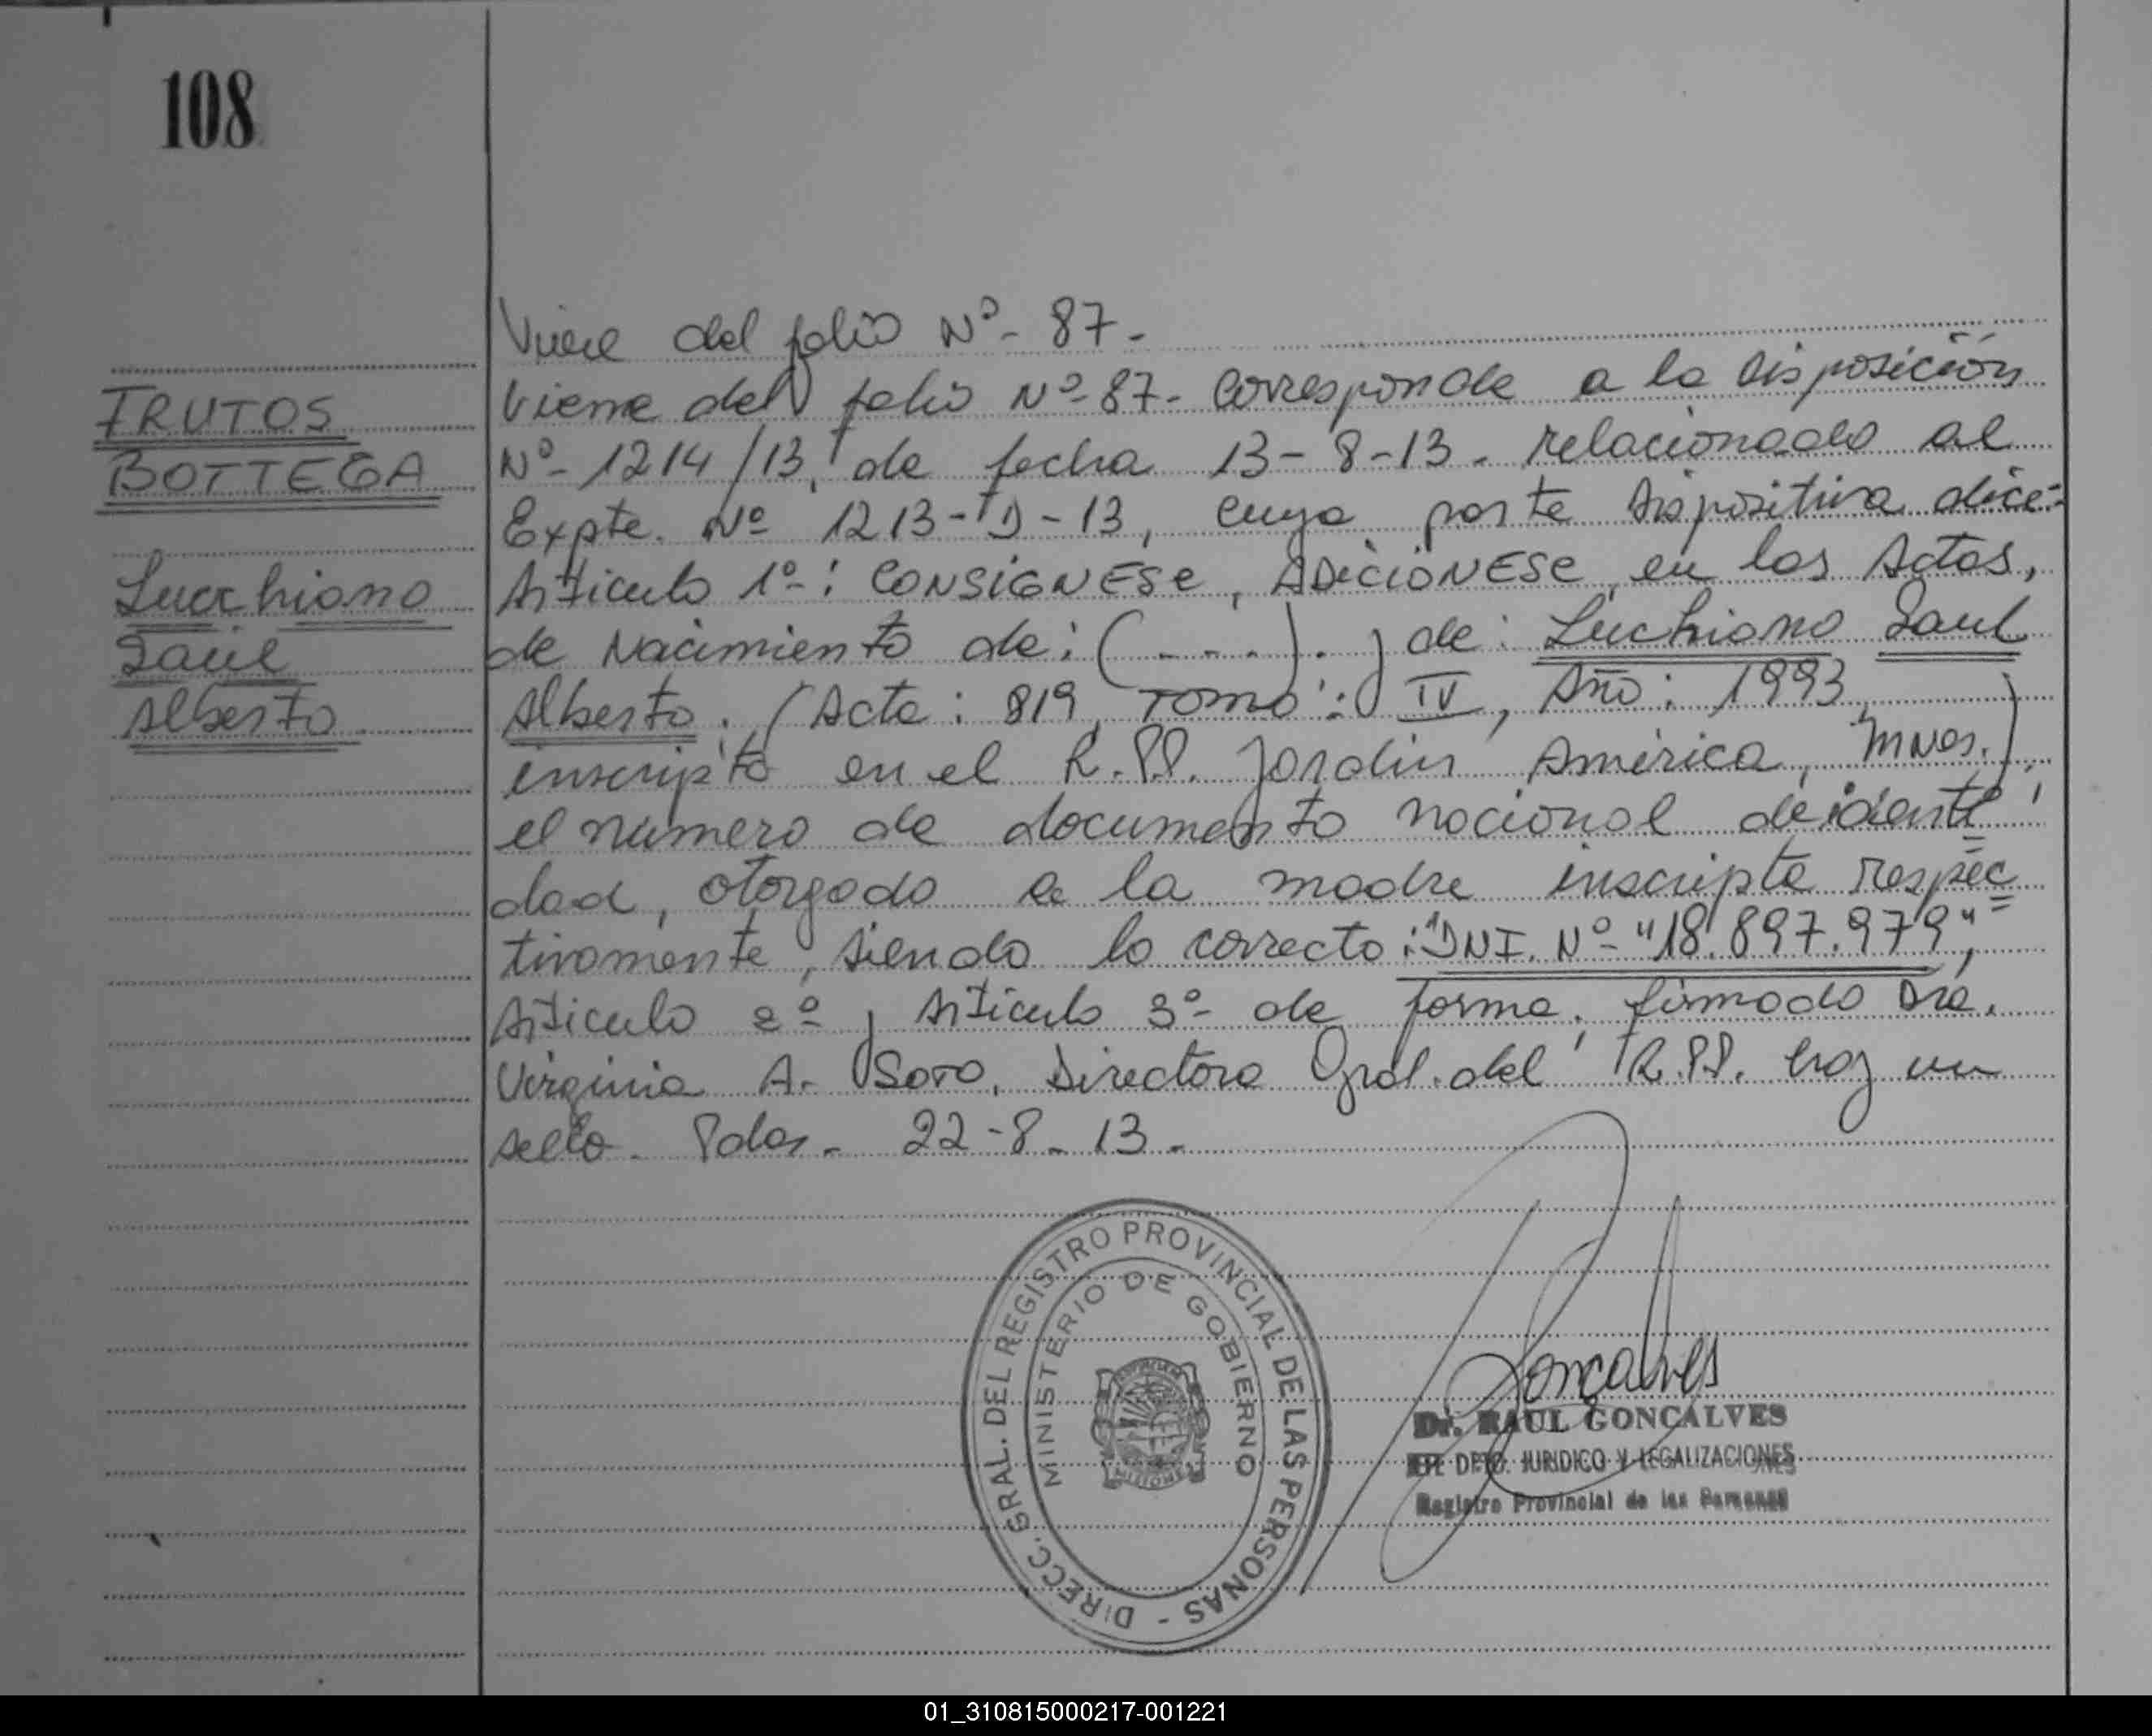 108
Viene del folio Nº- 87-
FRUTOS
BOTTEGA
Lucchiano
Saul
Alberto
Viene del folio Nº-87- Corresponde a la Disposición
Nº- 1214/13, de fecha 13-8-13. relacionado al
Expte. Nº 1213-D-13, cuya parte Dispositiva dice:
Artículo 1º-: CONSIGNESE, ADICIONESE en las Actas,
de Nacimiento de: (----). y de: Luchiano Saul
Alberto. (Acta: 819, Tomo: IV, Año: 1993,
inscripto en el R.PP. Jardin América, Mnes.),
el número de documento nacional de identi
dad, otorgado a la madre inscripta respec
tivamente, siendo lo correcto: "DNI. Nº- "18.897.979",
Artículo 2º y Artículo 3º- de forma. firmado Dra.
Virginia A. Soto, Directora Gral. del R.PP. hay un
sello. Pdas. 22-8-13-
DIRECC. GRAL. DEL REGISTRO PROVINCIAL DE LAS PERSONAS -
MINISTERIO DE GOBIERNO
MISIONES
Goncalves
Dr. RAUL GONCALVES
JEFE DPTO. JURIDICO Y LEGALIZACIONES
Registro Provincial de las Personas
01_310815000217-001221